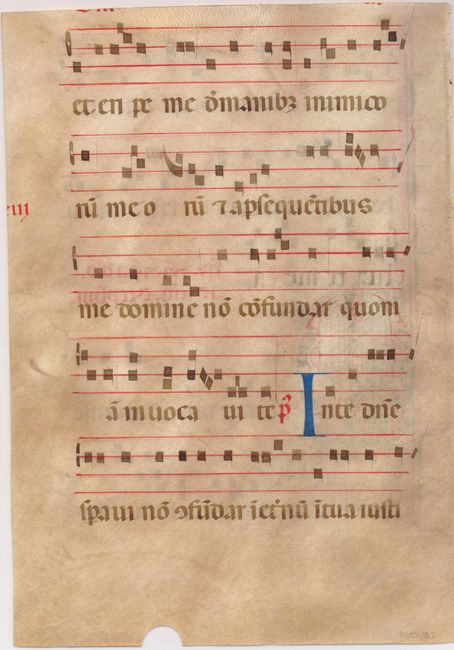 et eri pe me d̄ manibꝫ inimico
rū meo rū ⁊ a pſequētibus
me domine nō cōfundar quoni
ā inuoca ui te p̄ In te dn̄e
ſperaui nō ꝯfūdar ī et̄nū ī tua iusti